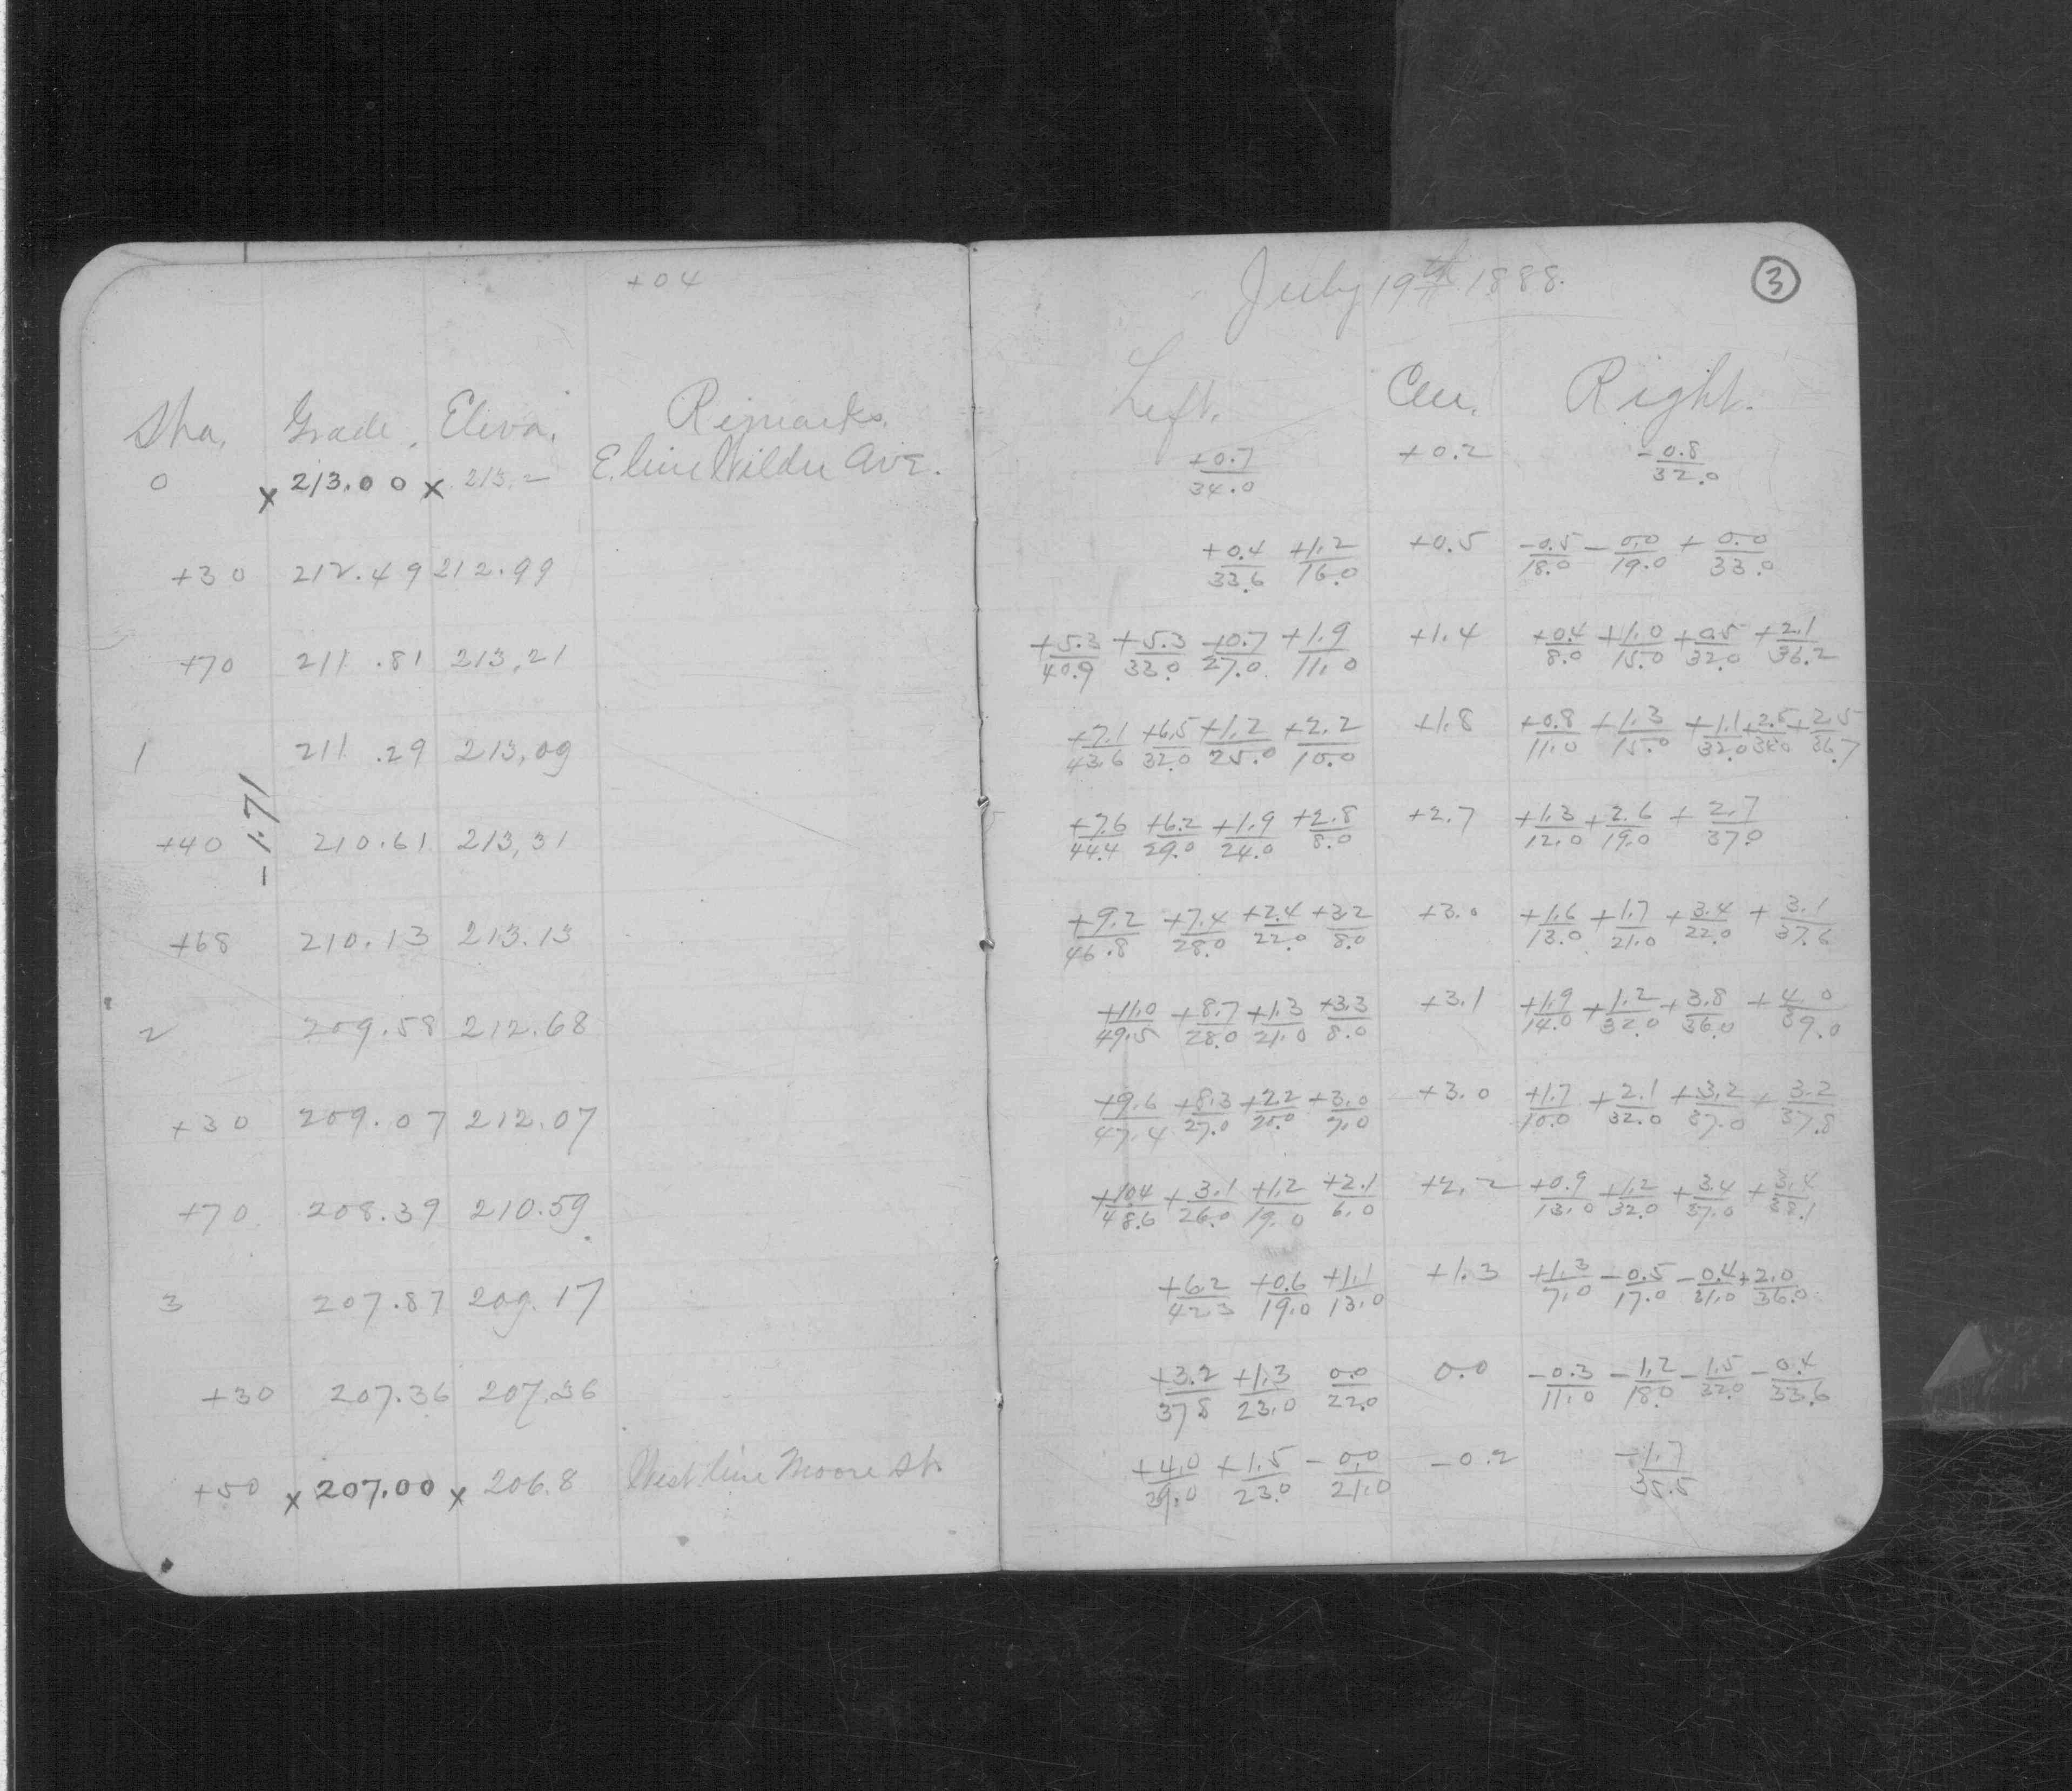 +04
Sta. Grade. Eleva. Remarks.
0 x 213.00 x 213.2 E. line Wilder Ave.
+30 212.49 212.99
+70 211.81 213,21
1 211.29 213,09
-1.71
+40 210.61 213,31
+68 210.13 213.13
2 209.58 212.68
+30 209.07 212.07
+70 208.39 210.59
3 207.87 209.17
+30 207.36 207.36
+50 x 207.00 x 206.8 West line Moore St.
July 19th 1888. 3
Left. Cen. Right.
+0.7/34.0 +0.2 -0.8/32.0
+0.4/33.6 +1.2/16.0 +0.5 -0.5/18.0 -0.0/19.0 +0.0/33.0
+5.3/40.9 +5.3/33.0 +0.7/27.0 +1.9/11.0 +1.4 +0.4/8.0 +1.0/15.0 +0.5/32.0 +2.1/36.2
+7.1/43.6 +6.5/32.0 +1.2/25.0 +2.2/10.0 +1.8 +0.8/11.0 +1.3/15.0 +1.1/32.0 +2.5/36.7
+7.6/44.4 +6.2/29.0 +1.9/24.0 +2.8/8.0 +2.7 +1.3/12.0 +2.6/19.0 +2.7/37.0
+9.2/46.8 +7.4/28.0 +2.4/22.0 +3.2/8.0 +3.0 +1.6/13.0 +1.7/21.0 +3.4/22.0 +3.1/37.6
+11.0/49.5 +8.7/28.0 +1.3/21.0 +3.3/8.0 +3.1 +1.9/14.0 +1.2/32.0 +3.8/36.0 +4.0/39.0
+9.6/47.4 +8.3/27.0 +2.2/20.0 +3.0/7.0 +3.0 +1.7/10.0 +2.1/32.0 +3.2/37.0 +3.2/37.8
+10.4/48.6 +3.1/26.0 +1.2/19.0 +2.1/6.0 +2.2 +0.9/13.0 +1.2/32.0 +3.4/37.0 +3.4/38.1
+6.2/42.3 +0.6/19.0 +1.1/13.0 +1.3 +1.3/7.0 -0.5/17.0 -0.4/31.0 +2.0/36.0
+3.2/37.8 +1.3/23.0 0.0/22.0 0.0 -0.3/11.0 -1.2/18.0 -1.5/32.0 -0.4/33.6
+4.0/39.0 +1.5/23.0 -0.0/21.0 -0.2 -1.7/35.5